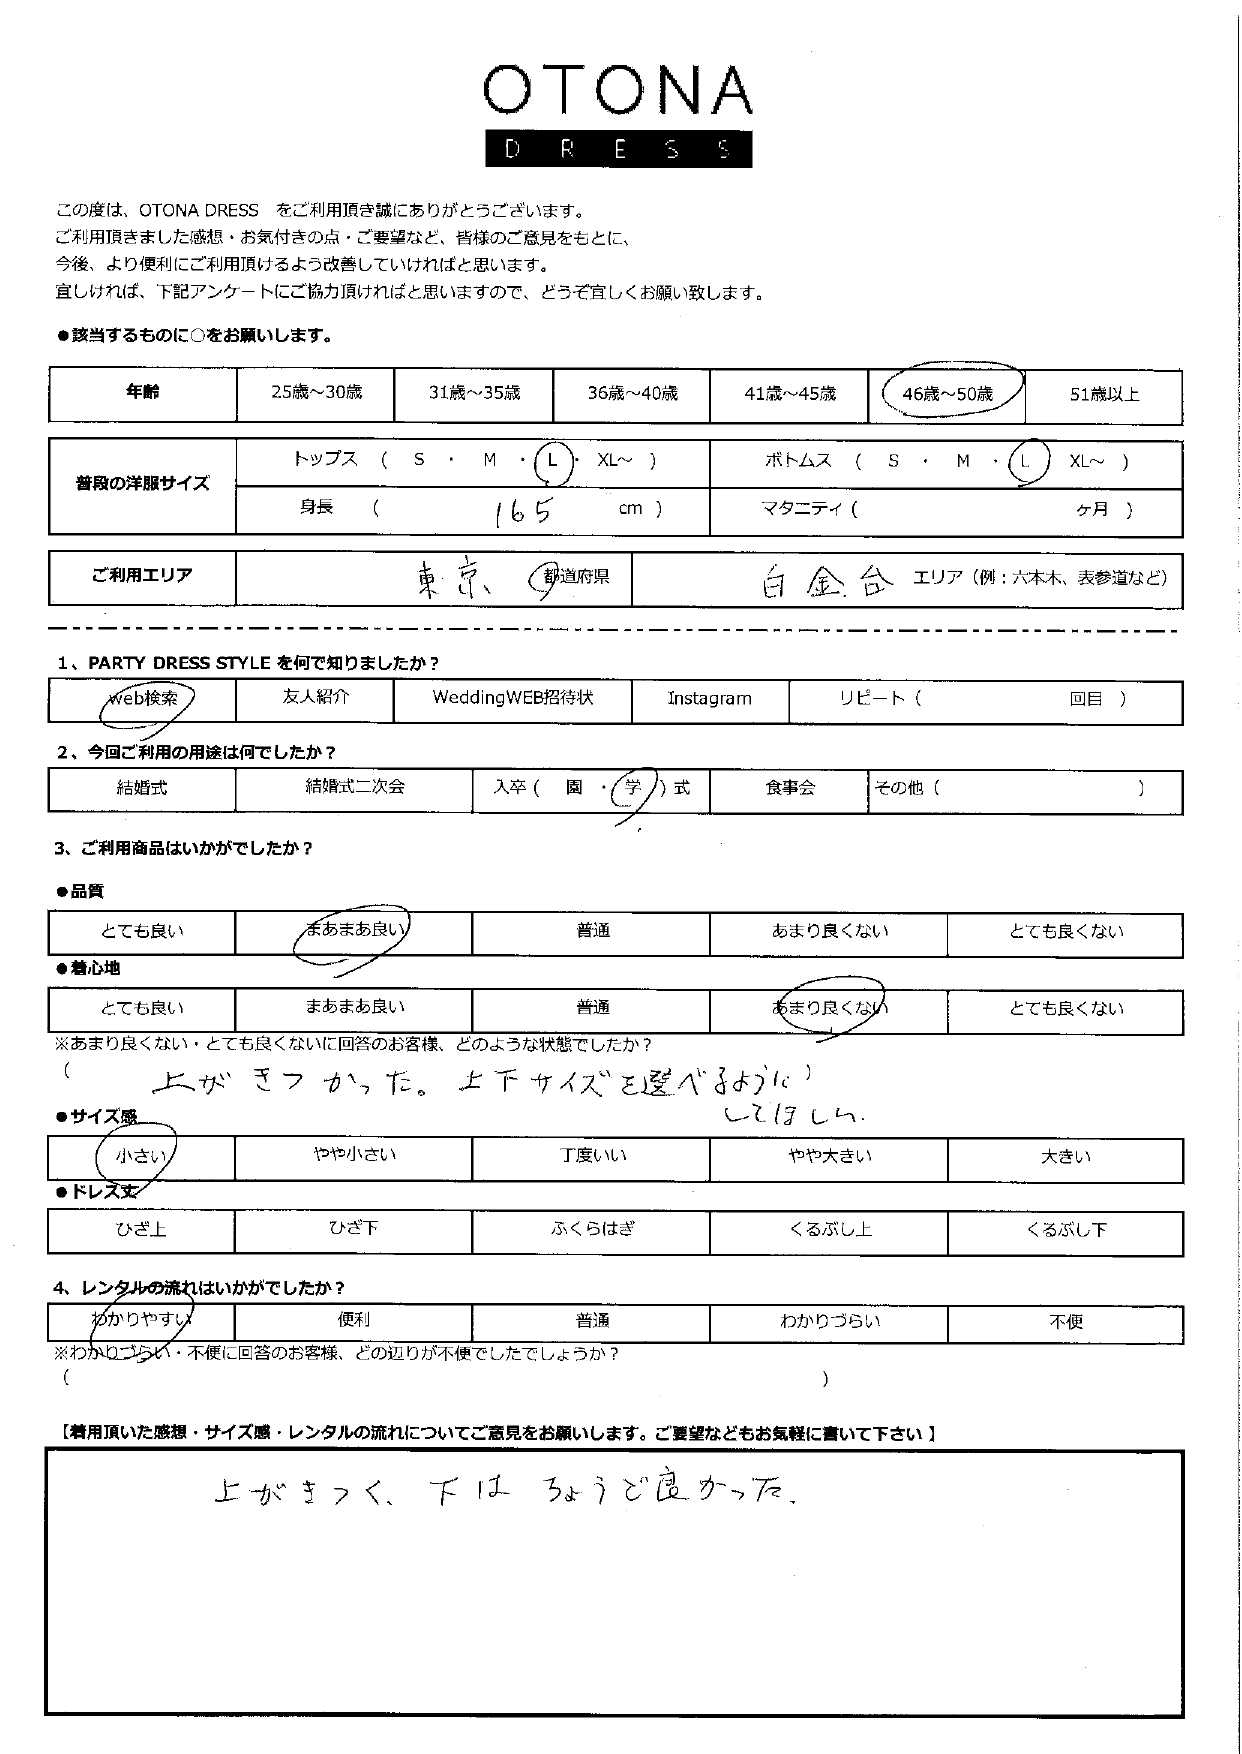 OTONA
DRESS
この度は、OTONA DRESS をご利用頂き誠にありがとうございます。
ご利用頂きました感想・お気付きの点・ご要望など、皆様のご意見をもとに、
今後、より便利にご利用頂けるよう改善していければと思います。
宜しければ、下記アンケートにご協力頂ければと思いますので、どうぞ宜しくお願い致します。
●該当するものに○をお願いします。
年齢 25歳～30歳 31歳～35歳 36歳～40歳 41歳～45歳 46歳～50歳 51歳以上
普段の洋服サイズ トップス ( S ・ M ・ L ・ XL～ ) ボトムス ( S ・ M ・ L XL～ )
身長 ( 165 cm ) マタニティ ( ヶ月 )
ご利用エリア 東京、 都道府県 白金台 エリア（例：六本木、表参道など）
1、PARTY DRESS STYLE を何で知りましたか？
web検索 友人紹介 WeddingWEB招待状 Instagram リピート ( 回目 )
2、今回ご利用の用途は何でしたか？
結婚式 結婚式二次会 入卒 ( 園 ・ 学 ) 式 食事会 その他 ( )
3、ご利用商品はいかがでしたか？
●品質
とても良い まあまあ良い 普通 あまり良くない とても良くない
●着心地
とても良い まあまあ良い 普通 あまり良くない とても良くない
※あまり良くない・とても良くないに回答のお客様、どのような状態でしたか？
( 上がきつかった。上下サイズを選べるように )
してほしい.
●サイズ感
小さい やや小さい 丁度いい やや大きい 大きい
●ドレス丈
ひざ上 ひざ下 ふくらはぎ くるぶし上 くるぶし下
4、レンタルの流れはいかがでしたか？
わかりやすい 便利 普通 わかりづらい 不便
※わかりづらい・不便に回答のお客様、どの辺りが不便でしたでしょうか？
( )
【着用頂いた感想・サイズ感・レンタルの流れについてご意見をお願いします。ご要望などもお気軽に書いて下さい】
上がきつく、下はちょうど良かった.